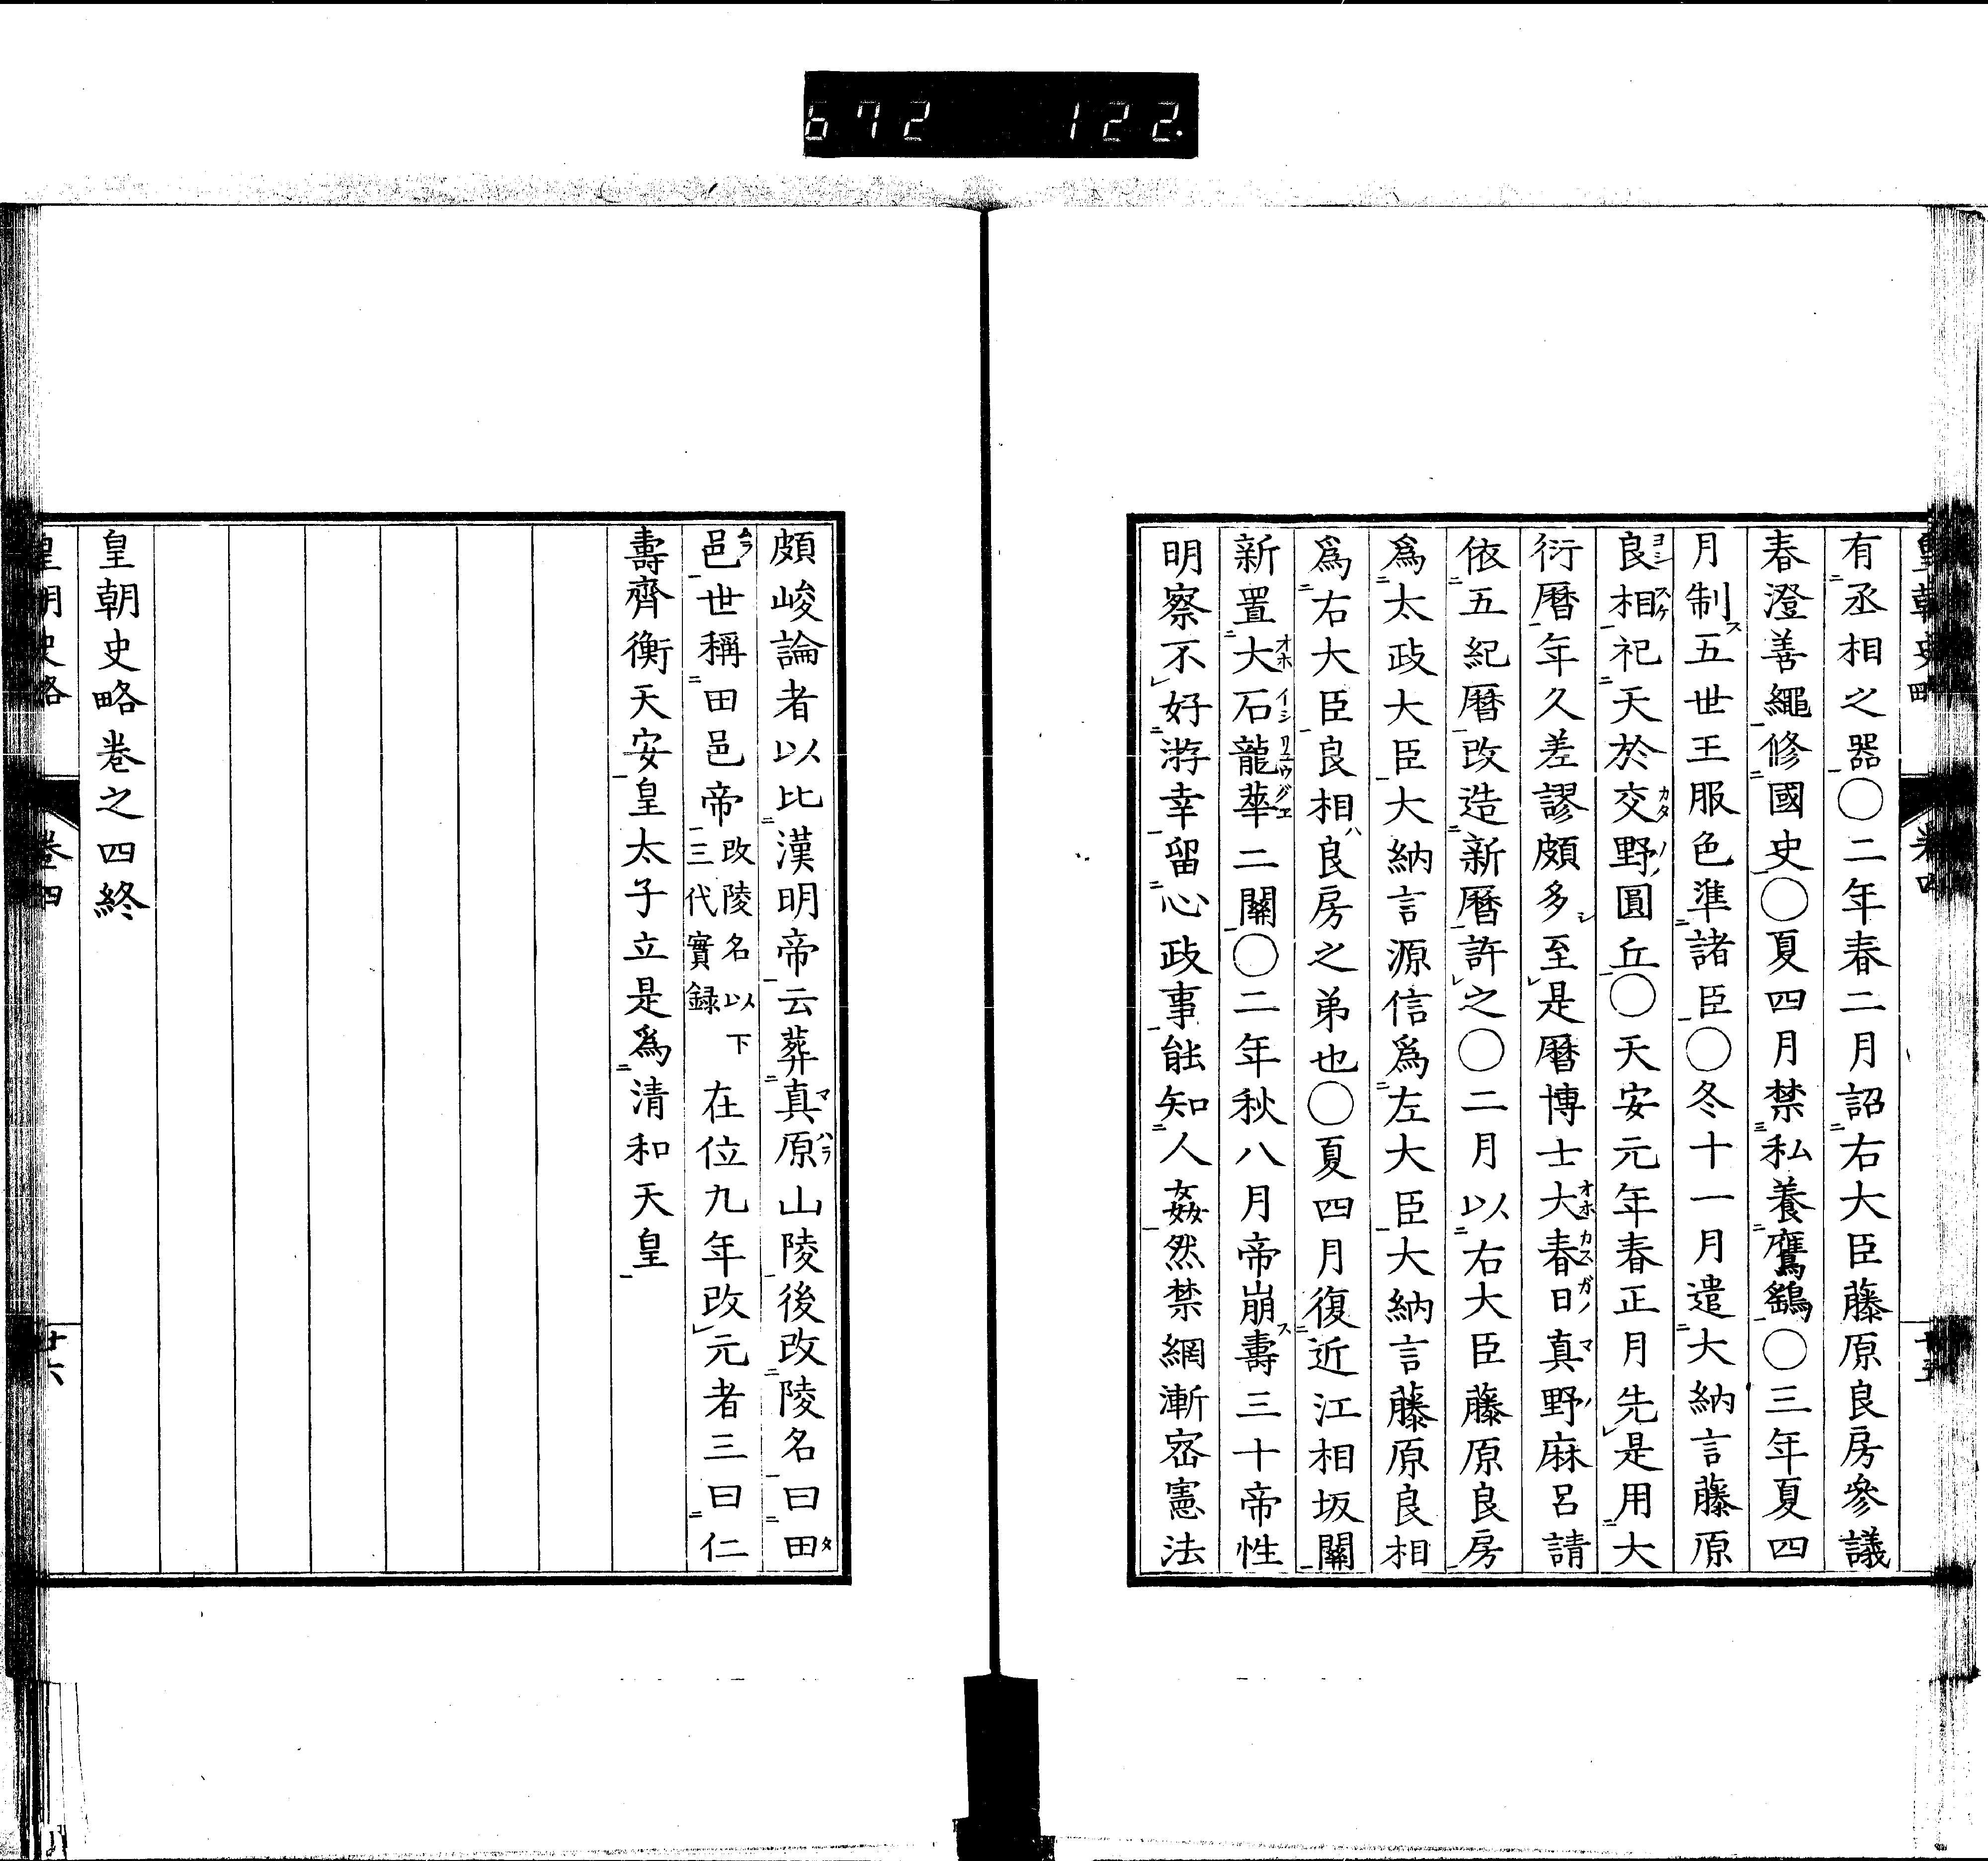 672 122.
皇朝史略 卷四
有丞相之器〇二年春二月詔右大臣藤原良房參議
春澄善繩修國史〇夏四月禁私養鷹鷂〇三年夏四
月制五世王服色準諸臣〇冬十一月遣大納言藤原
良相祀天於交野圓丘〇天安元年春正月先是用大
衍曆年久差謬頗多至是曆博士大春日真野麻呂請
依五紀曆改造新曆許之〇二月以右大臣藤原良房
爲太政大臣大納言源信爲左大臣大納言藤原良相
爲右大臣良相良房之弟也〇夏四月復近江相坂關
新置大石龍華二關〇二年秋八月帝崩壽三十帝性
明察不好游幸留心政事能知人姦然禁網漸密憲法
頗峻論者以比漢明帝云葬真原山陵後改陵名曰田
邑世稱田邑帝改陵名以下三代實録在位九年改元者三曰仁
壽齊衡天安皇太子立是爲清和天皇
皇朝史略卷之四終
皇朝史略 卷四 廿六